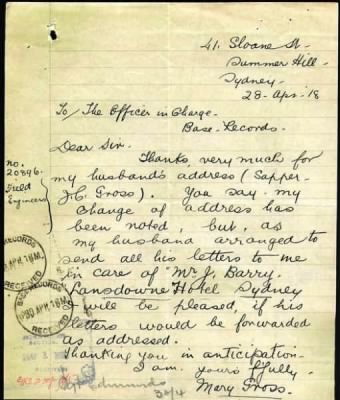 41. Sloane St.
Summer Hill.
Sydney.
28-Apr-18
To/ The Officer in Charge.
Base Records.
Dear Sir.
Thanks, very much for
my husband's address (Sapper.
J.C. Gross). You say my
change of address has
been noted, but, as
my husband arranged to
send all his letters to me
in care of Mr. J. Barry.
Lansdowne Hotel Sydney
I will be pleased, if his
letters would be forwarded
as addressed.
Thanking you in anticipation.
I am. yours ffully.
Mary Gross.
no.
20896.
Field
Engineers
BASE RECORDS
RECEIVED
BASE RECORDS
30 APR 18
RECEIVED
Sgt Edmunds
30/4